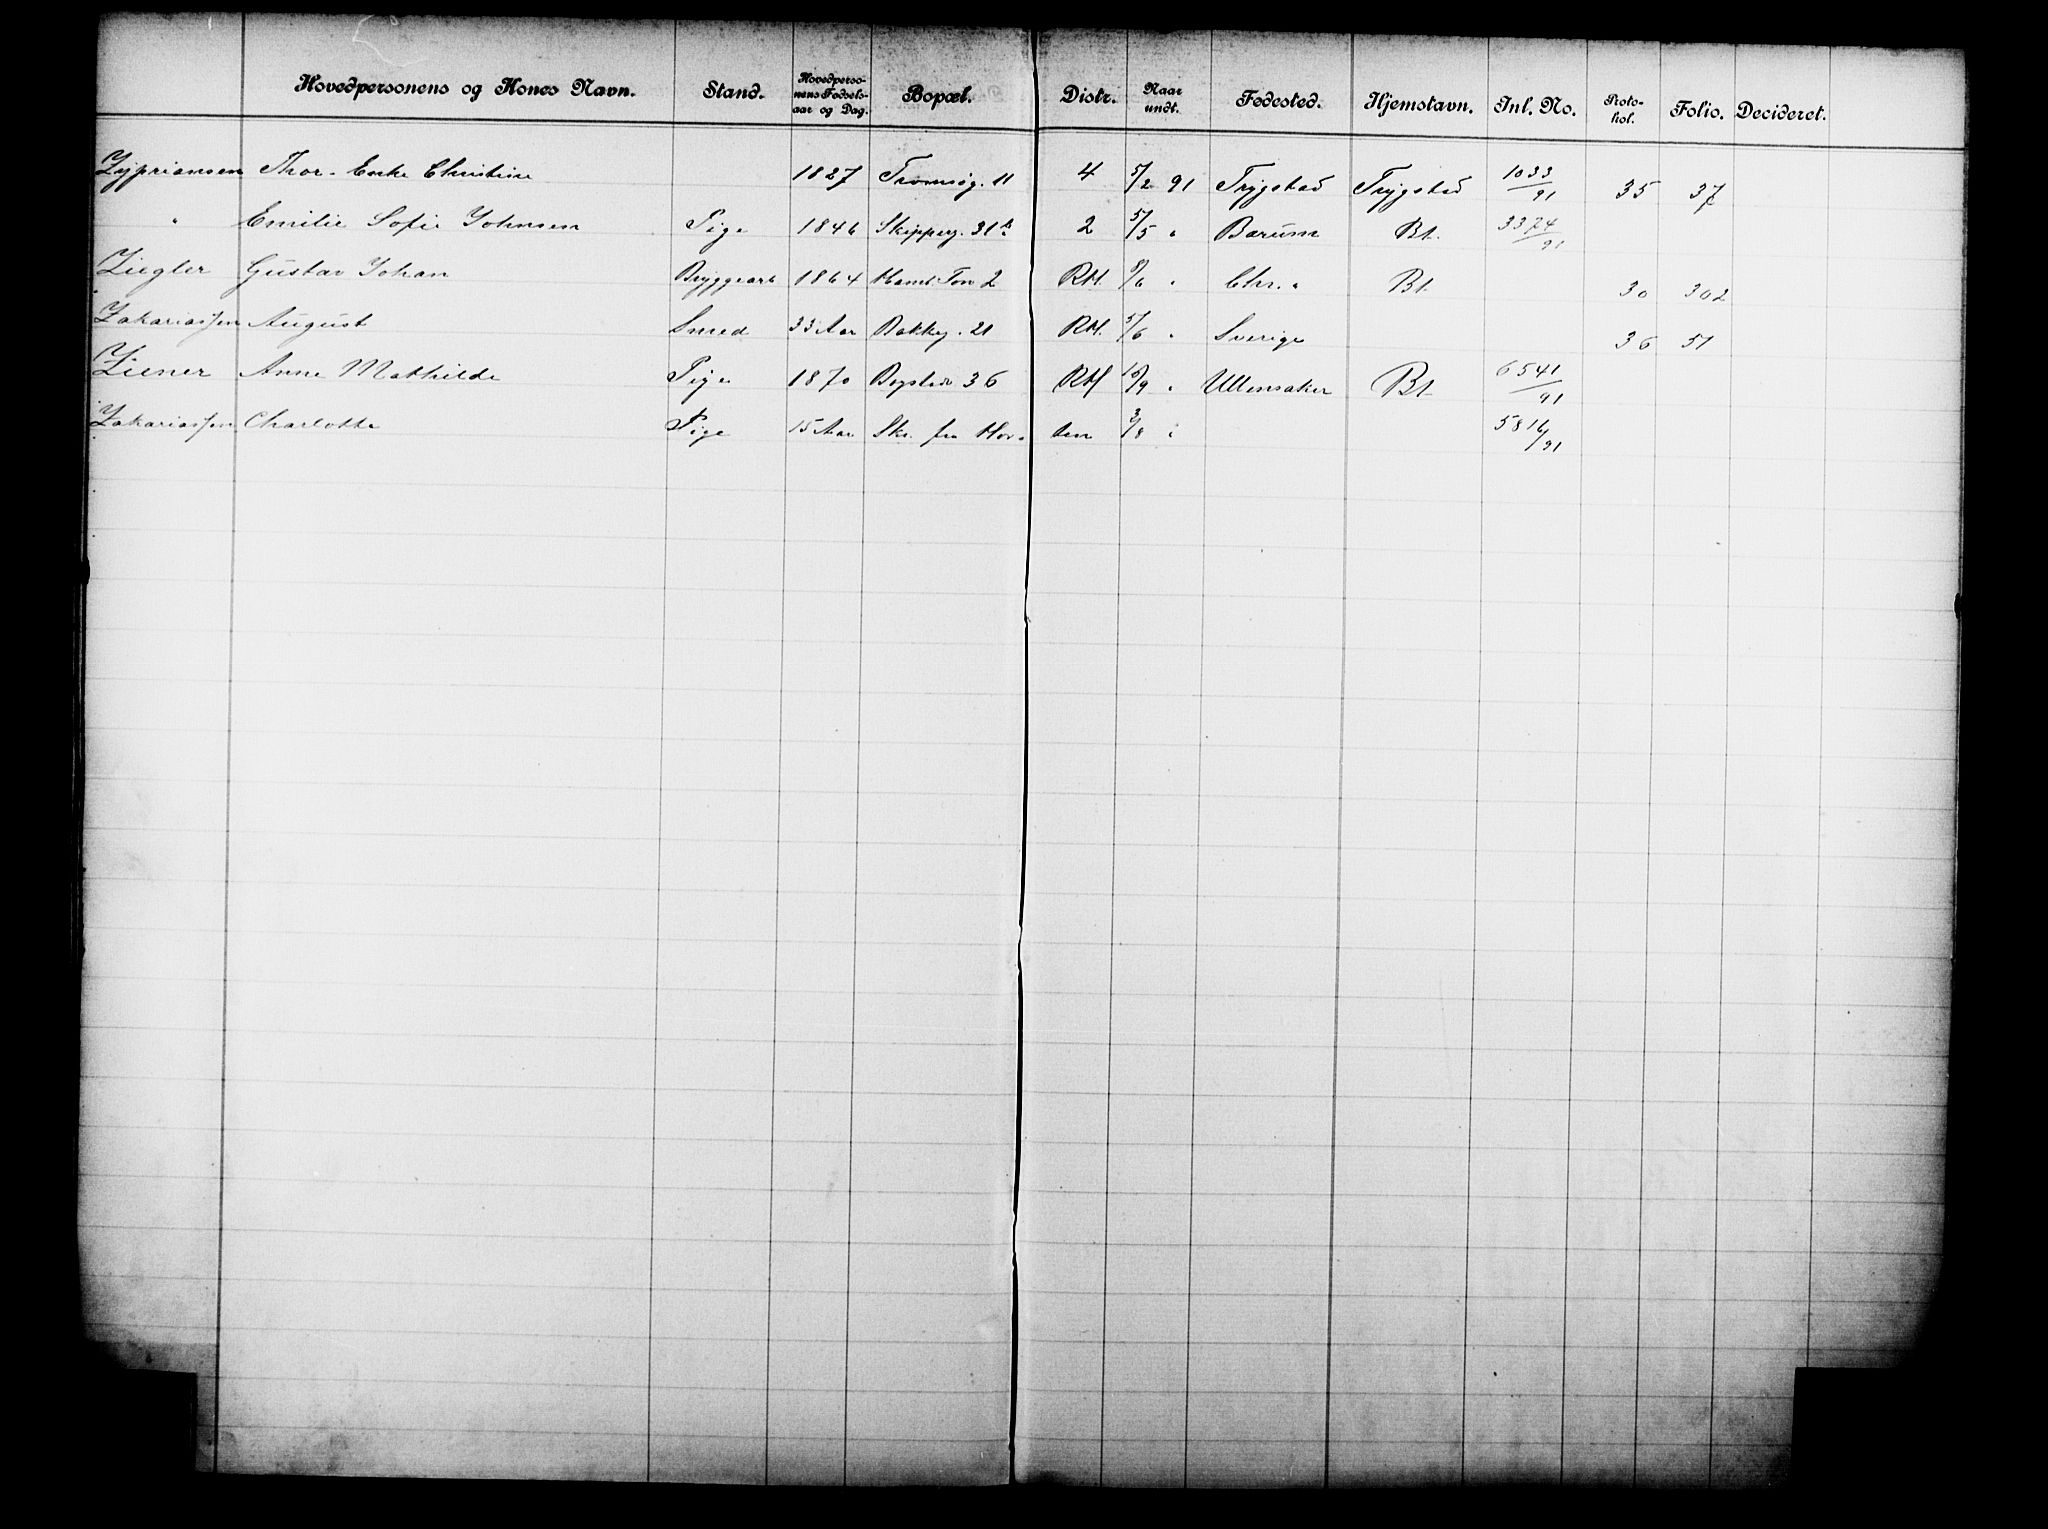 Hovedpersonens og Kones Navn. Stand. Hovedperso- nens Fødsels- aar og Dag. Bopæl. Distr. Naar undt. Fødested. Hjemstavn. Inl. No. Proto- kol. Folio. Decideret.
Zypriansen Thor - Enke Christine 1827 Tromsøg. 11 4 5/2 91 Trygstad Trygstad 1033/91 35 37
" Emilie Sofie Johnsen Pige 1846 Skipperg. 31b 2 5/5 " Bærum Bt. 3374/91
Ziegler Gustav Johan Bryggearb 1864 2 RM. 8/6 " Chr.a Bt. 30 302
Zakariassen August Smed 33 Aar Bakkeg. 21 RM. 5/6 " Sverige 36 51
Ziener Anne Mathilde Pige 1870 36 RM 10/9 " Ullensaker Bt. 6541/91
Zakariassen Charlotte Pige 15 Aar Skr. fra Hov. den 3/8 " 5816/91